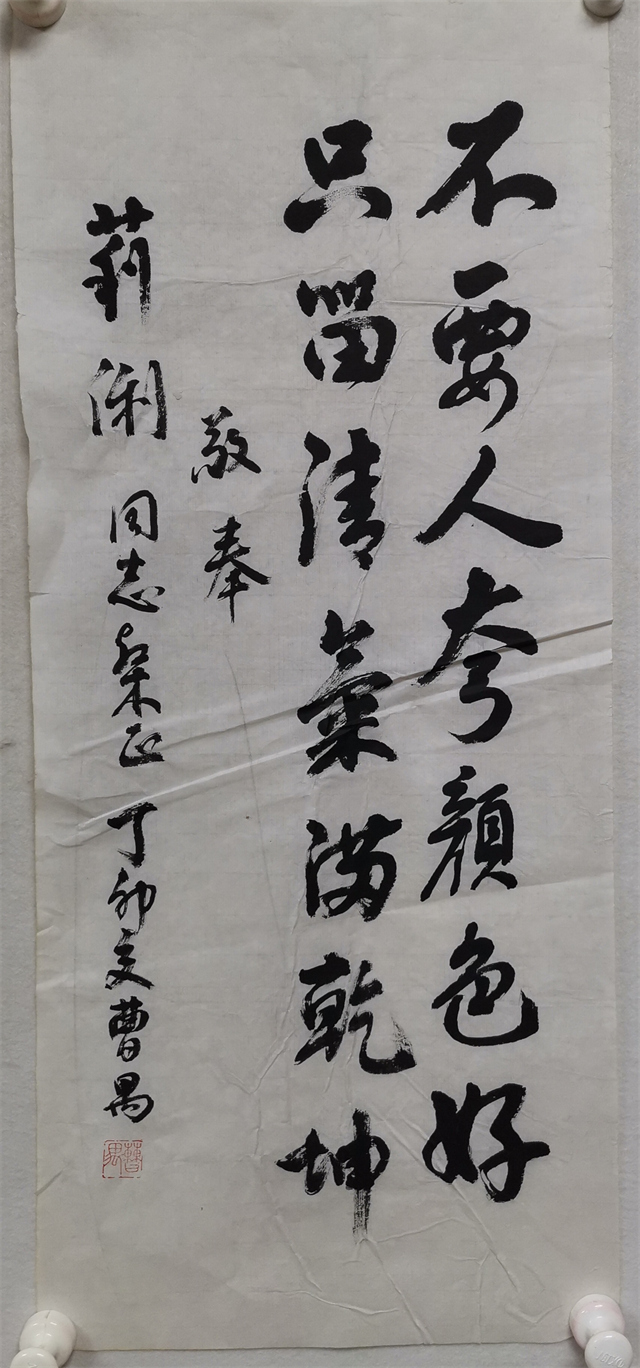 不要人夸颜色好
只留清氣满乾坤
敬奉
莉俐同志粲正 丁卯夏曹禺
曹禺